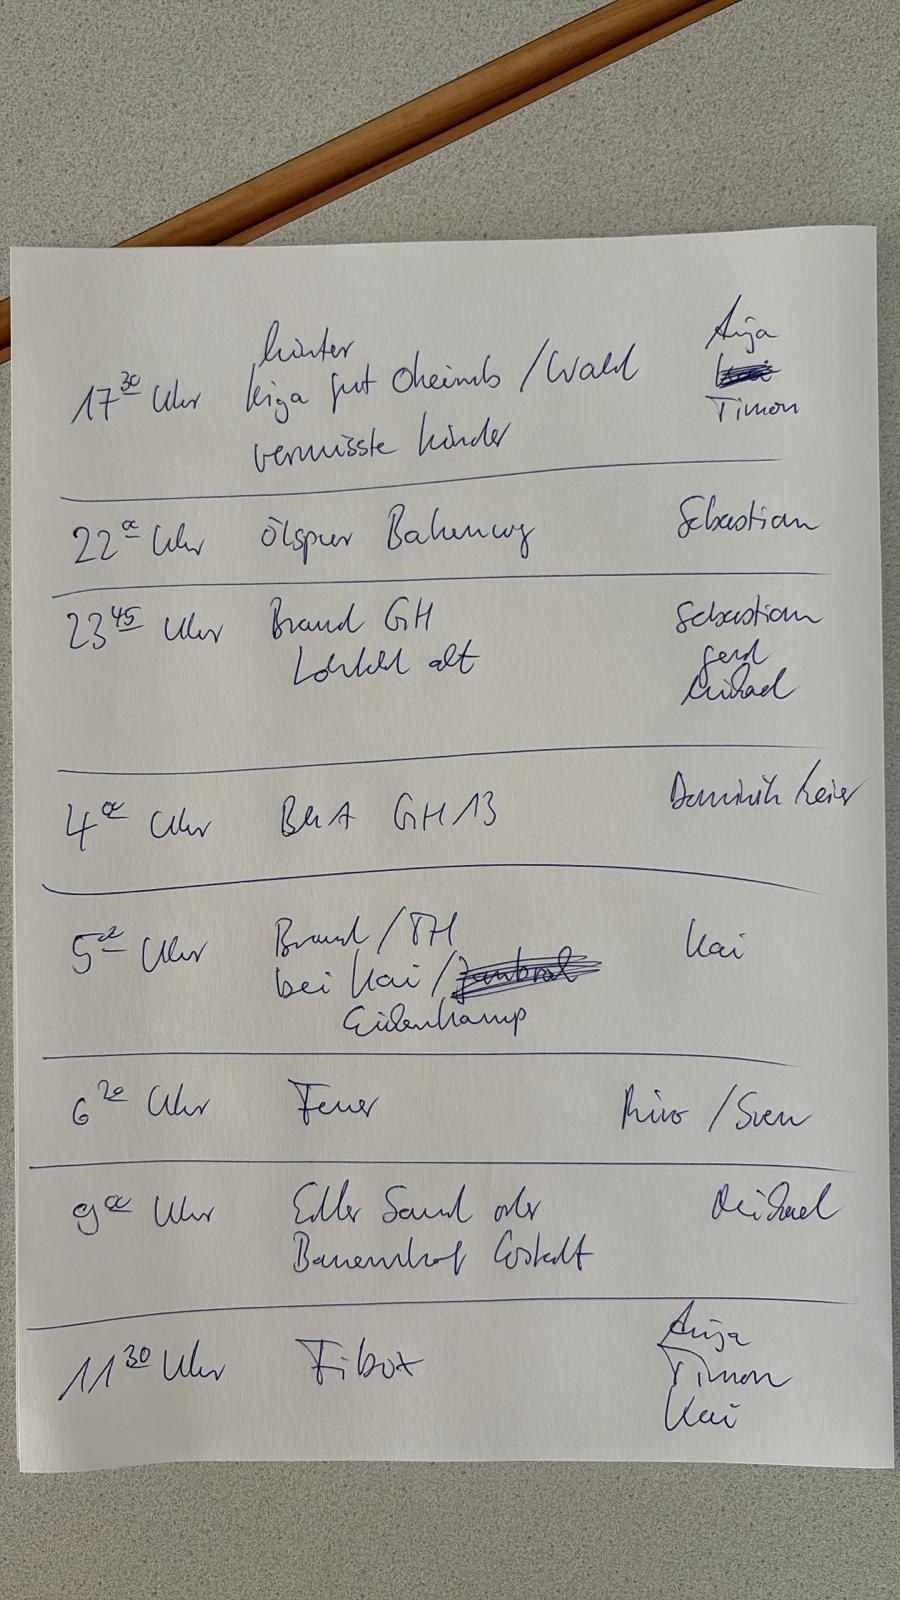 hinter Anja
17 30 Uhr Kiga Gut Oheimb / Wald
Timon
vermisste Kinder
22 00 Uhr Ölspur Bakenweg Sebastian
23 45 Uhr Brand GH Sebastian
alt Gerd
Michael
4 00 Uhr BMA GH 13 Dominik Meier
5 Uhr Brand / TH Kai
bei Kai /
Eichenkamp
6 20 Uhr Feuer / Sven
9 00 Uhr Edler Sand oder Michael
Bauernhof
11 30 Uhr Fibox Anja
Timon
Kai